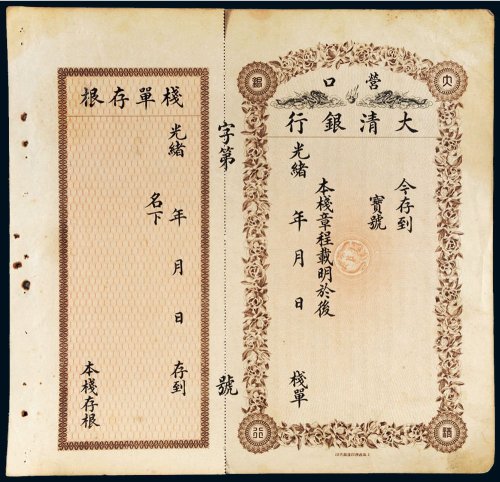 大
清
銀
行
營口
大清銀行
今存到
寶號
本棧章程載明於後
光緒 年 月 日
棧單
字第 號
棧單存根
光緒 年 月 日 存到
名下
本棧存根